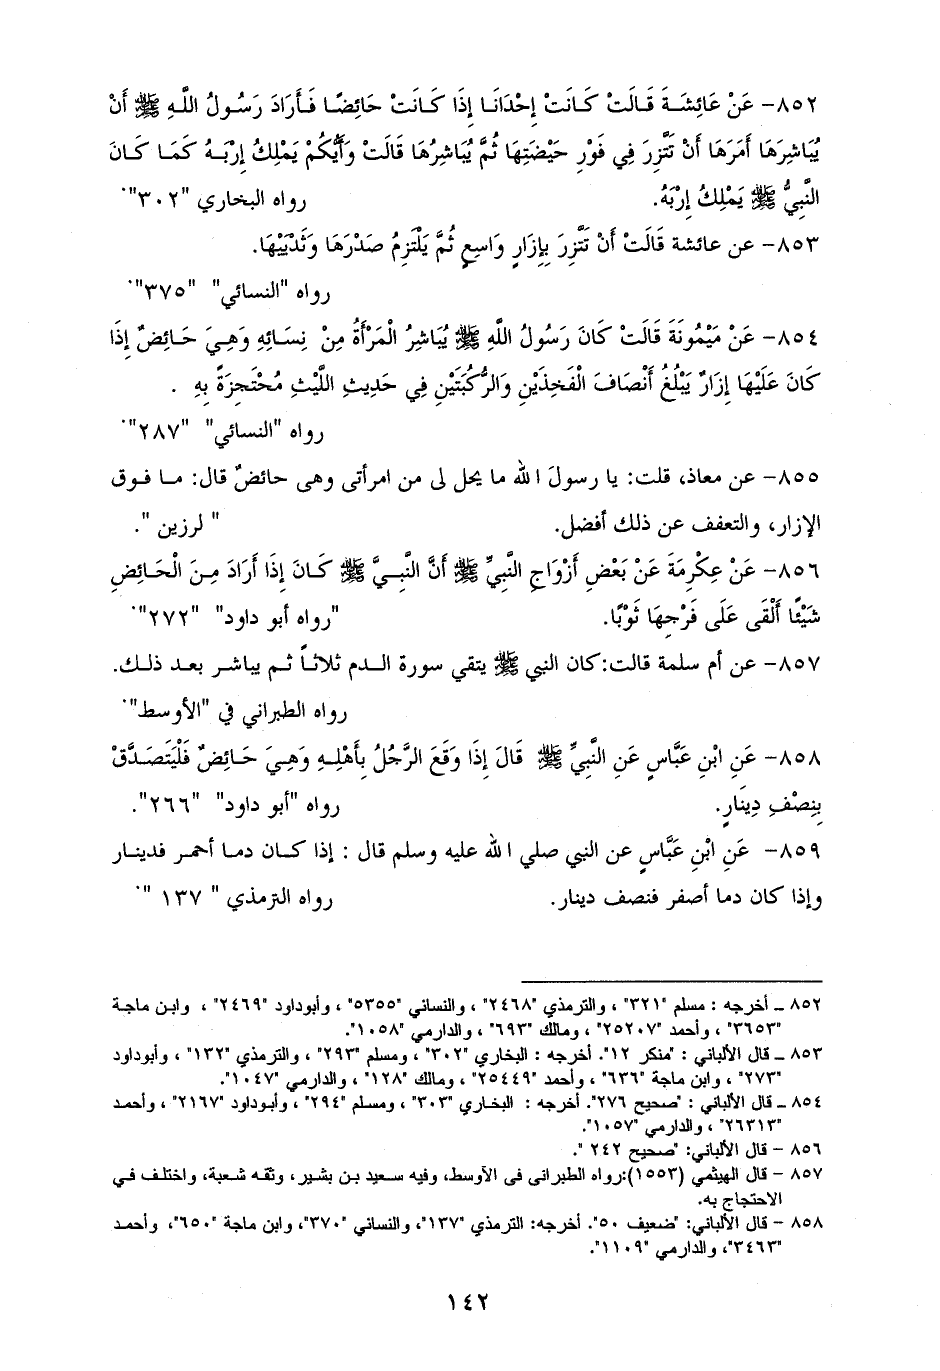 ٨٥٢- عَنْ عَائِشَةَ قَالَتْ كَانَتْ إِحْدَانَا إِذَا كَانَتْ حَائِضًا فَأَرَادَ رَسُولُ اللَّهِ ﷺ أَنْ
يُبَاشِرَهَا أَمَرَهَا أَنْ تَتَّزِرَ فِي فَوْرِ حَيْضَتِهَا ثُمَّ يُبَاشِرُهَا قَالَتْ وَأَيُّكُمْ يَمْلِكُ إِرْبَهُ كَمَا كَانَ
النَّبِيُّ ﷺ يَمْلِكُ إِرْبَهُ. رواه البخاري "٣٠٢".
٨٥٣- عن عائشة قَالَتْ أَنْ تَتَّزِرَ بِإِزَارٍ وَاسِعٍ ثُمَّ يَلْتَزِمُ صَدْرَهَا وَثَدْيَيْهَا.
رواه "النسائي" "٣٧٥".
٨٥٤- عَنْ مَيْمُونَةَ قَالَتْ كَانَ رَسُولُ اللَّهِ ﷺ يُبَاشِرُ الْمَرْأَةَ مِنْ نِسَائِهِ وَهِيَ حَائِضٌ إِذَا
كَانَ عَلَيْهَا إِزَارٌ يَبْلُغُ أَنْصَافَ الْفَخِذَيْنِ وَالرُّكْبَتَيْنِ فِي حَدِيثِ اللَّيْثِ مُحْتَجِزَةً بِهِ .
رواه "النسائي" "٢٨٧".
٨٥٥- عن معاذ، قلت: يا رسولَ الله ما يحل لى من امرأتى وهى حائضٌ قال: ما فوق
الإزار، والتعفف عن ذلك أفضل. " لرزين ".
٨٥٦- عَنْ عِكْرِمَةَ عَنْ بَعْضِ أَزْوَاجِ النَّبِيِّ ﷺ أَنَّ النَّبِيَّ ﷺ كَانَ إِذَا أَرَادَ مِنَ الْحَائِضِ
شَيْئًا أَلْقَى عَلَى فَرْجِهَا ثَوْبًا. "رواه أبو داود" "٢٧٢".
٨٥٧- عن أم سلمة قالت:كان النبي ﷺ يتقي سورة الدم ثلاثاً ثم يباشر بعد ذلك.
رواه الطبراني في "الأوسط".
٨٥٨- عَنِ ابْنِ عَبَّاسٍ عَنِ النَّبِيِّ ﷺ قَالَ إِذَا وَقَعَ الرَّجُلُ بِأَهْلِهِ وَهِيَ حَائِضٌ فَلْيَتَصَدَّقْ
بِنِصْفِ دِينَارٍ. رواه "أبو داود" "٢٦٦".
٨٥٩- عَنِ ابْنِ عَبَّاسٍ عن النبي صلي الله عليه وسلم قال : إذا كان دما أحمر فدينار
وإذا كان دما أصفر فنصف دينار. رواه الترمذي " ١٣٧ ".
٨٥٢ ـ أخرجه : مسلم "٣٢١" ، والترمذي "٢٤٦٨" ، والنسائي "٥٣٥٥" ، وأبوداود "٢٤٦٩" ، وابن ماجة
"٣٦٥٣" ، وأحمد "٢٥٢٠٧" ، ومالك "٦٩٣" ، والدارمي "١٠٥٨".
٨٥٣ ـ قال الألباني : "منكر ١٢". أخرجه : البخاري "٣٠٢" ، ومسلم "٢٩٣" ، والترمذي "١٣٢" ، وأبوداود
"٢٧٣" ، وابن ماجة "٦٣٦" ، وأحمد "٢٥٤٤٩" ، ومالك "١٢٨" ، والدارمي "١٠٤٧".
٨٥٤ ـ قال الألباني : "صحيح ٢٧٦". أخرجه : البخاري "٣٠٣" ، ومسلم "٢٩٤" ، وأبوداود "٢١٦٧" ، وأحمد
"٢٦٣١٣" ، والدارمي "١٠٥٧".
٨٥٦ - قال الألباني: "صحيح ٢٤٢ ".
٨٥٧ - قال الهيثمي (١٥٥٣):رواه الطبرانى فى الأوسط، وفيه سعيد بن بشير، وثقه شعبة، واختلف في
الاحتجاج به.
٨٥٨ - قال الألباني: "ضعيف ٥٠". أخرجه: الترمذي "١٣٧"، والنسائي "٣٧٠"، وابن ماجة "٦٥٠"، وأحمد
"٣٤٦٣"، والدارمي "١١٠٩".
١٤٢